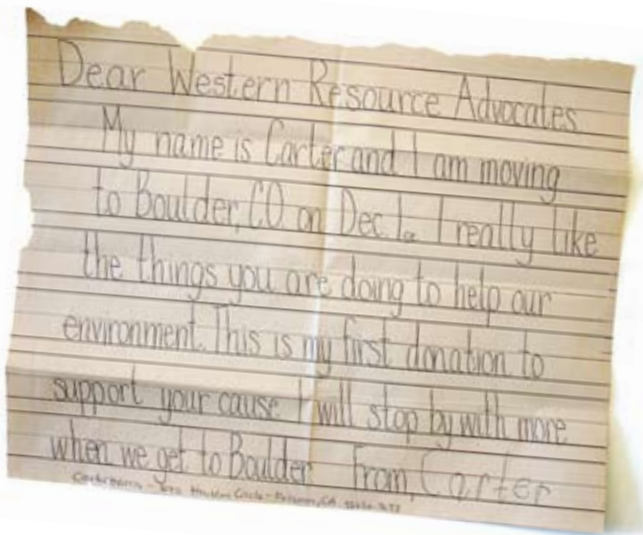 Dear Western Resource Advocates
My name is Carter and I am moving
to Boulder, CO on Dec. 1. I really like
the things you are doing to help our
environment. This is my first donation to
support your cause I will stop by with more
when we get to Boulder From, Carter
Circle - Folsom, CA